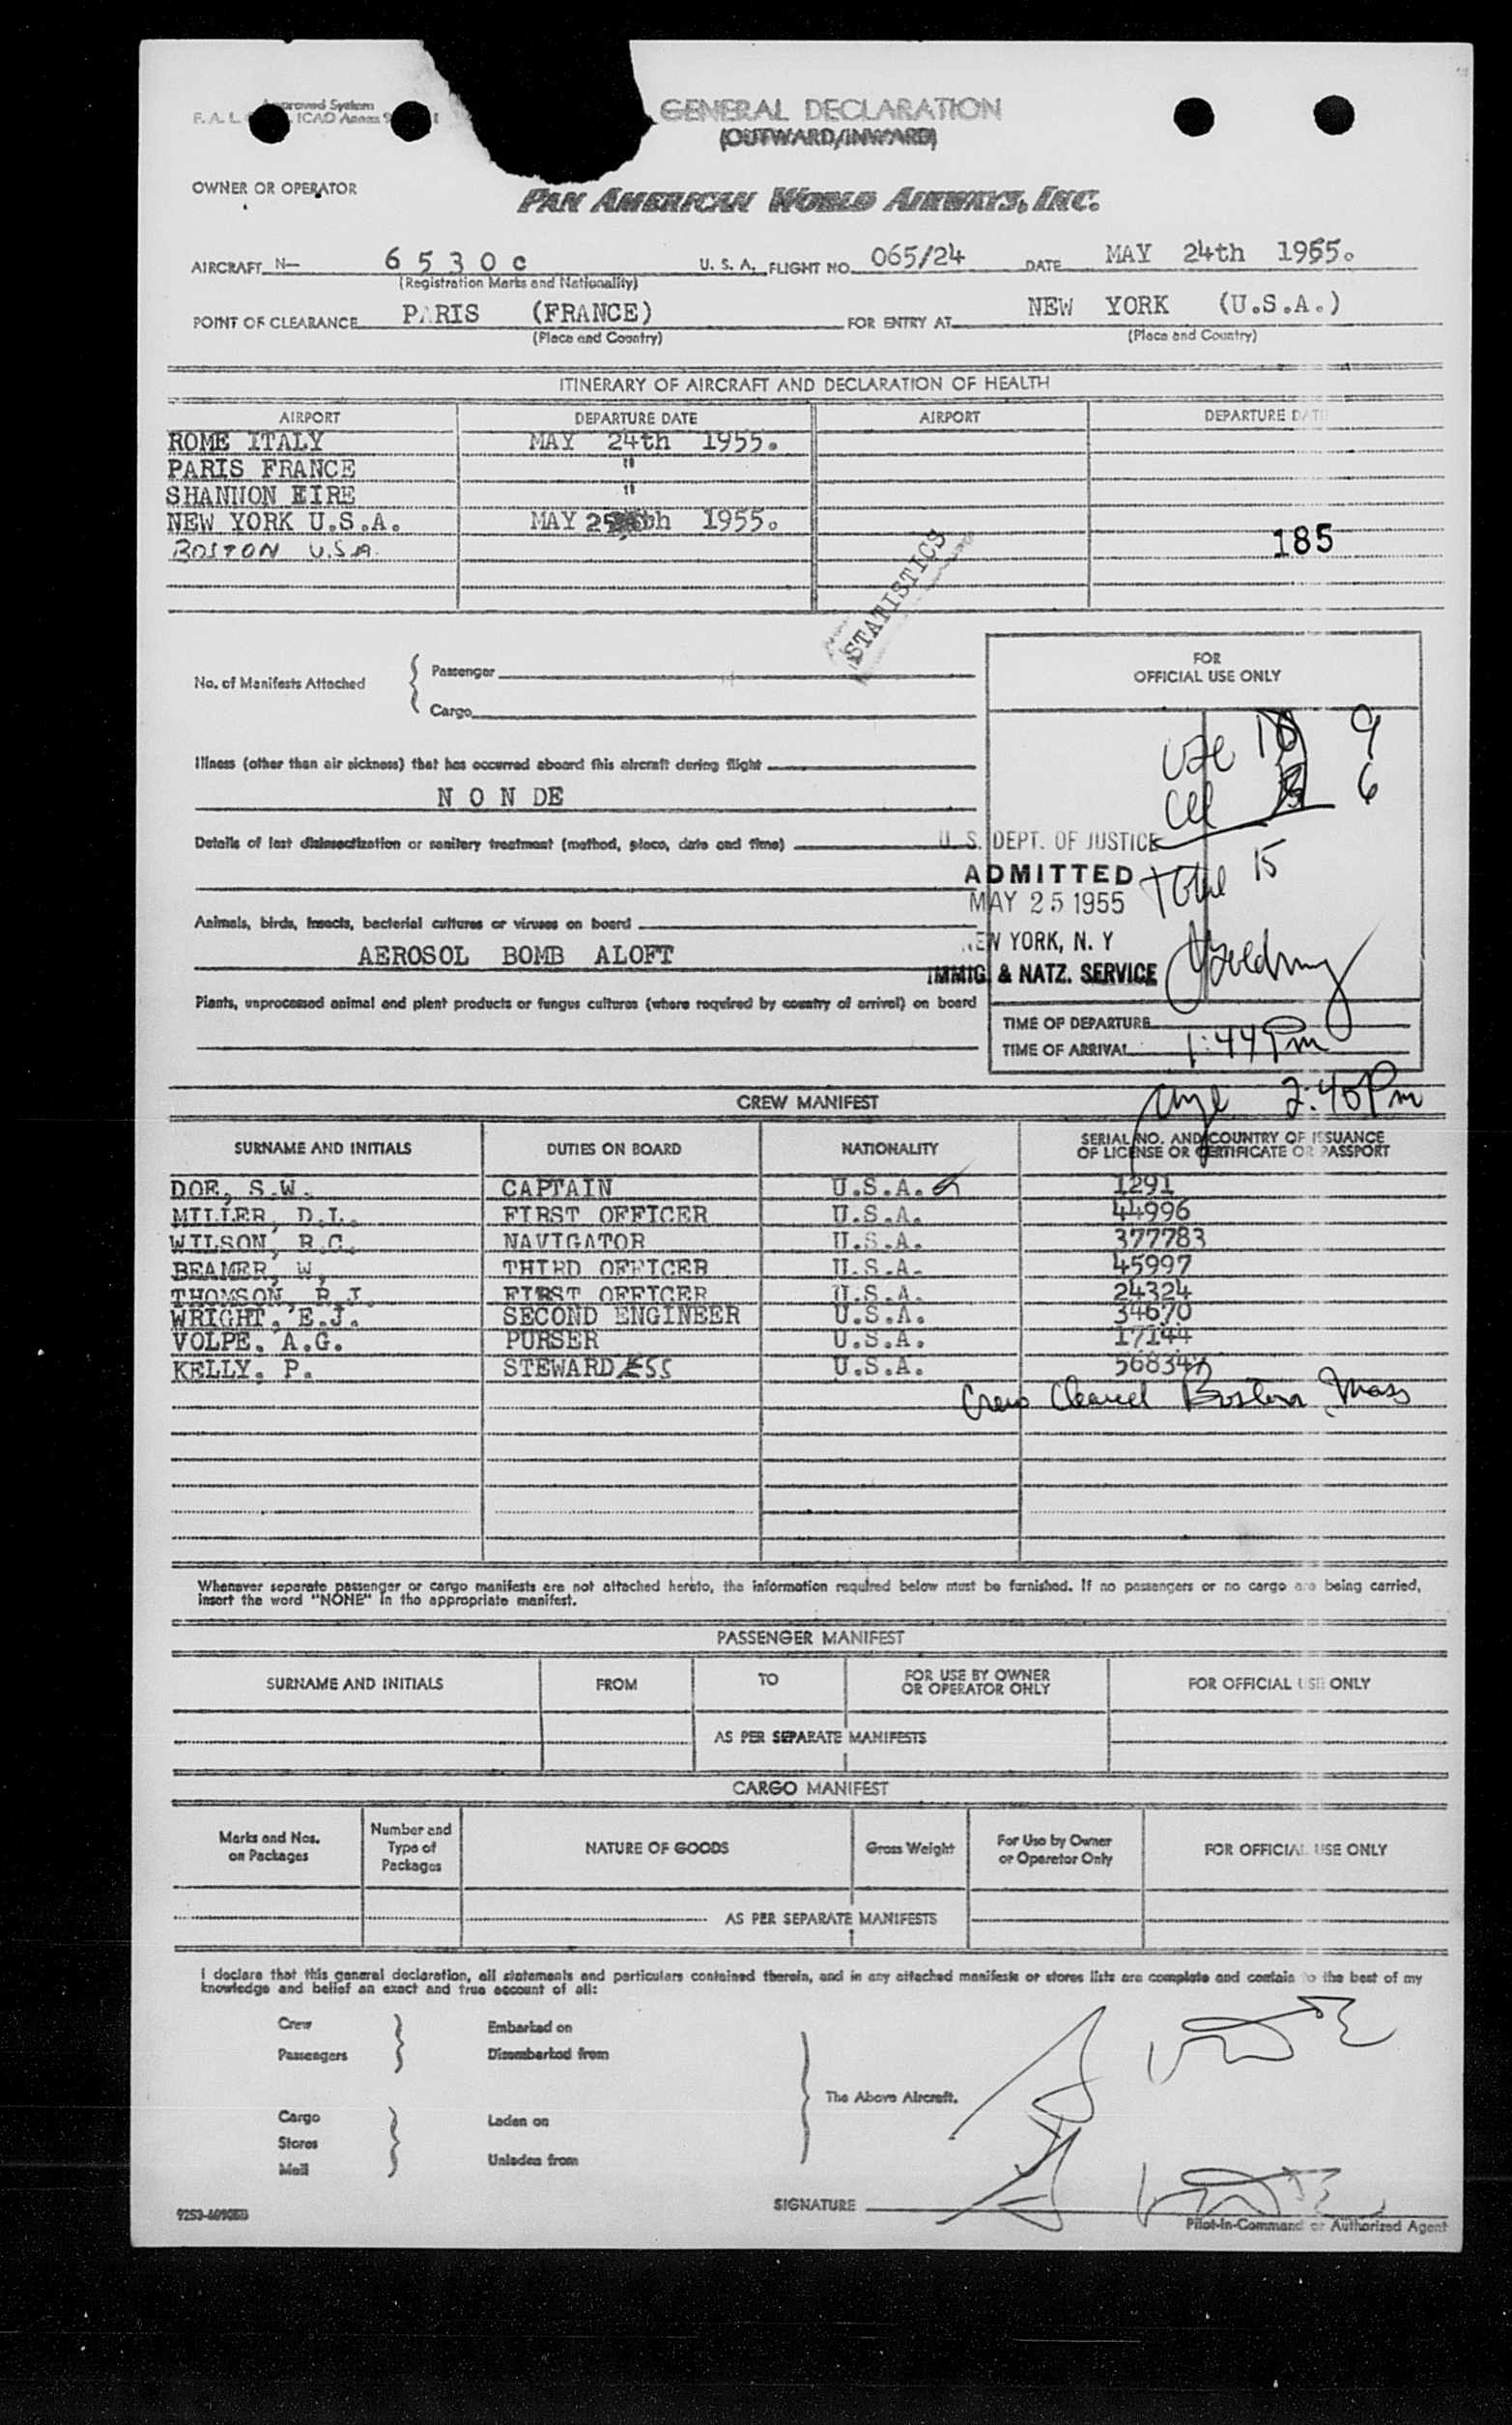 Approved System
F. A. L. ICAO Annex 9
GENERAL DECLARATION
(OUTWARD/INWARD)
OWNER OR OPERATOR
PAN AMERICAN WORLD AIRWAYS, INC.
AIRCRAFT N— 6 5 3 0 C U. S. A. FLIGHT NO. 065/24 DATE MAY 24th 1955.
(Registration Marks and Nationality)
POINT OF CLEARANCE PARIS (FRANCE) FOR ENTRY AT NEW YORK (U.S.A.)
(Place and Country) (Place and Country)
ITINERARY OF AIRCRAFT AND DECLARATION OF HEALTH
AIRPORT DEPARTURE DATE AIRPORT DEPARTURE DATE
ROME ITALY MAY 24th 1955.
PARIS FRANCE "
SHANNON EIRE "
NEW YORK U.S.A. MAY 25th 1955.
BOSTON U.S.A. 185
STATISTICS
No. of Manifests Attached { Passenger
Cargo
FOR
OFFICIAL USE ONLY
Illness (other than air sickness) that has occurred aboard this aircraft during flight
N O N DE
USC 10 9
Cel 6
Details of last disinsectization or sanitary treatment (method, place, date and time)
U. S. DEPT. OF JUSTICE
ADMITTED
Total 15
MAY 25 1955
Animals, birds, insects, bacterial cultures or viruses on board
NEW YORK, N. Y
AEROSOL BOMB ALOFT
IMMIG. & NATZ. SERVICE
Plants, unprocessed animal and plant products or fungus cultures (where required by country of arrival) on board
TIME OF DEPARTURE
TIME OF ARRIVAL 1:44 Pm
2:40 Pm
CREW MANIFEST
SURNAME AND INITIALS DUTIES ON BOARD NATIONALITY SERIAL NO. AND COUNTRY OF ISSUANCE
OF LICENSE OR CERTIFICATE OR PASSPORT
DOE, S.W. CAPTAIN U.S.A. 1291
MILLER, D.L. FIRST OFFICER U.S.A. 44996
WILSON, R.C. NAVIGATOR U.S.A. 377783
BEAMER, W, THIRD OFFICER U.S.A. 45997
THOMSON, R.J. FIRST OFFICER U.S.A. 24324
WRIGHT, E.J. SECOND ENGINEER U.S.A. 34670
VOLPE, A.G. PURSER U.S.A. 17144
KELLY, P. STEWARDESS U.S.A. 568347
Crew Cleared Boston, Mass
Whenever separate passenger or cargo manifests are not attached hereto, the information required below must be furnished. If no passengers or no cargo are being carried,
insert the word "NONE" in the appropriate manifest.
PASSENGER MANIFEST
SURNAME AND INITIALS FROM TO FOR USE BY OWNER
OR OPERATOR ONLY FOR OFFICIAL USE ONLY
AS PER SEPARATE MANIFESTS
CARGO MANIFEST
Marks and Nos.
on Packages
Number and
Type of
Packages
NATURE OF GOODS
Gross Weight
For Use by Owner
or Operator Only
FOR OFFICIAL USE ONLY
AS PER SEPARATE MANIFESTS
I declare that this general declaration, all statements and particulars contained therein, and in any attached manifests or stores lists are complete and contain to the best of my
knowledge and belief an exact and true account of all:
Crew Embarked on
Passengers Disembarked from
The Above Aircraft.
Cargo Laden on
Stores
Mail Unladen from
SIGNATURE
Pilot-in-Command or Authorized Agent